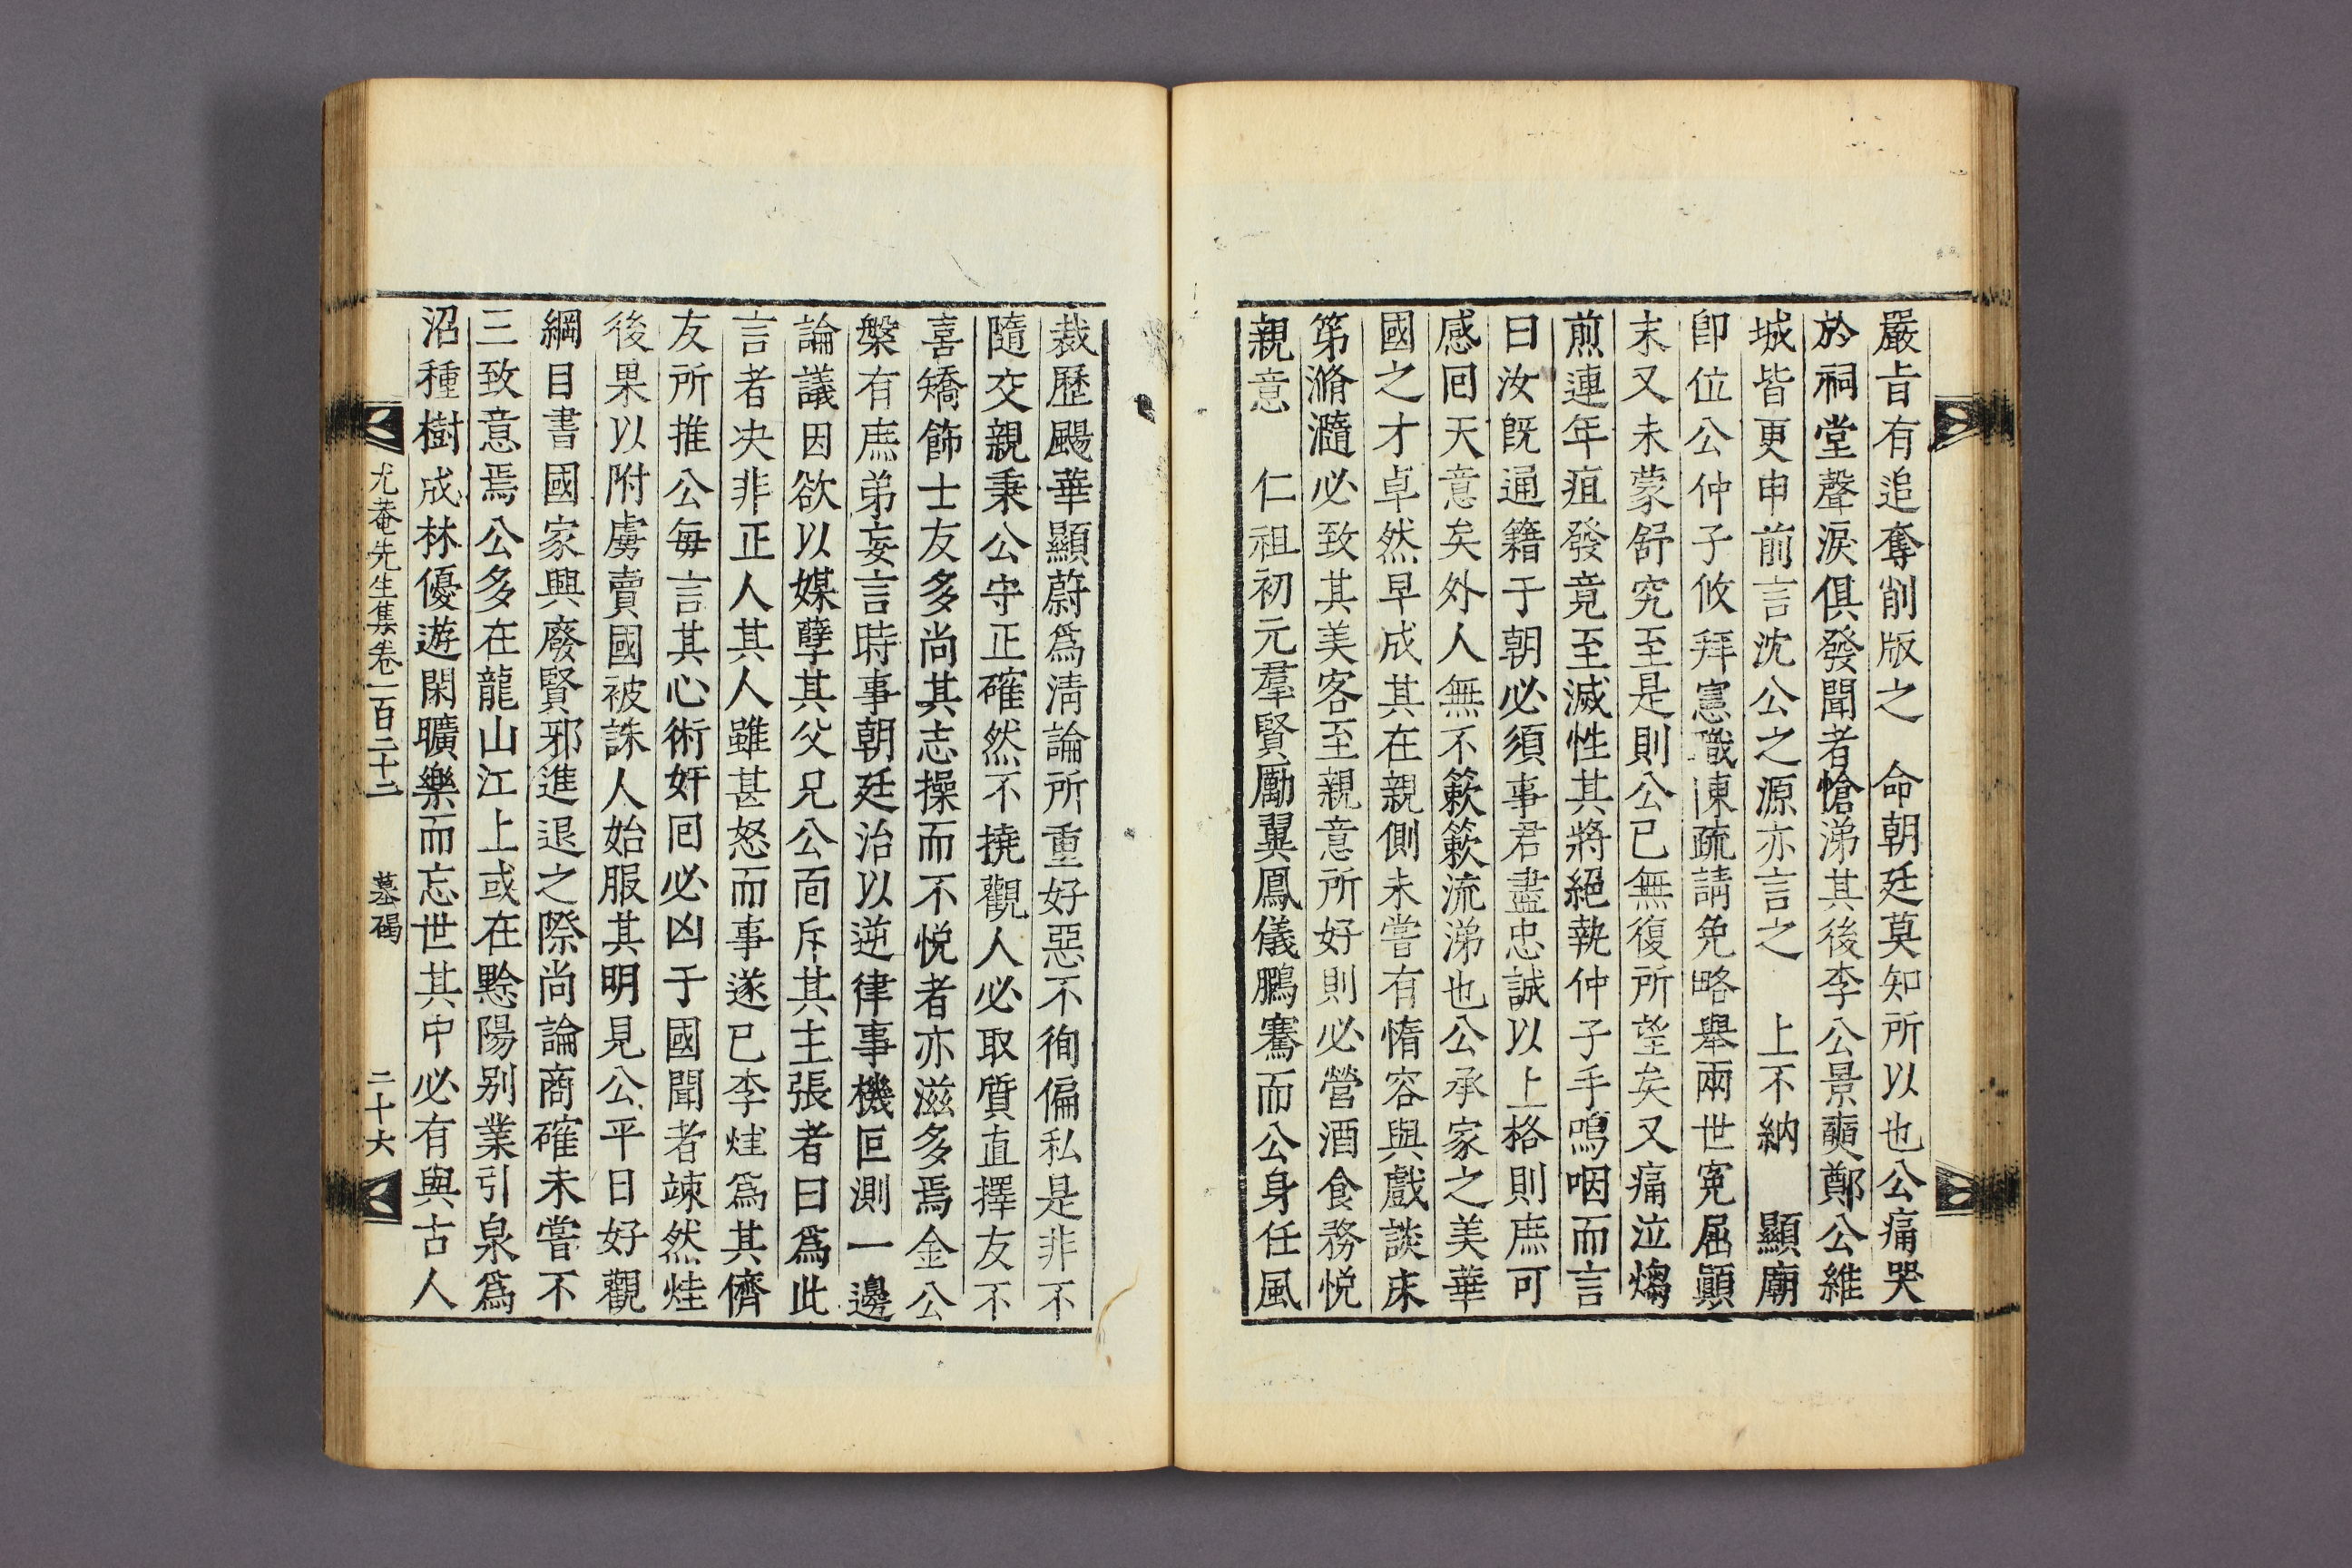 嚴旨有追奪削版之 命朝廷莫知所以也公痛哭
於祠堂聲淚俱發聞者愴涕其後李公景奭鄭公維
城皆更申前言沈公之源亦言之 上不納 顯廟
卽位公仲子攸拜憲職陳疏請免略舉兩世寃屈顚
末又未蒙舒究至是則公已無復所望矣又痛泣煼
煎連年疽發竟至滅性其將絕執仲子手嗚咽而言
曰汝旣通籍于朝必須事君盡忠誠以上格則庶可
感回天意矣外人無不簌簌流涕也公承家之美華
國之才卓然早成其在親側未嘗有惰容與戲談床
第滫瀡必致其美客至親意所好則必營酒食務悅
親意 仁祖初元羣賢勵翼鳳儀鵬騫而公身任風
裁歷颺華顯蔚爲淸論所重好惡不徇偏私是非不
隨交親秉公守正確然不撓觀人必取質直擇友不
喜矯飾士友多尚其志操而不悅者亦滋多焉金公
槃有庶弟妄言時事朝廷治以逆律事機叵測一邊
論議因欲以媒孼其父兄公面斥其主張者曰爲此
言者决非正人其人雖甚怒而事遂已李烓爲其儕
友所推公每言其心術奸回必凶于國聞者竦然烓
後果以附虜賣國被誅人始服其明見公平日好觀
綱目書國家興廢賢邪進退之際尚論商確未嘗不
三致意焉公多在龍山江上或在黔陽別業引泉爲
沼種樹成林優遊閑曠樂而忘世其中必有與古人
尤菴先生集卷一百二十二 墓碣 二十六